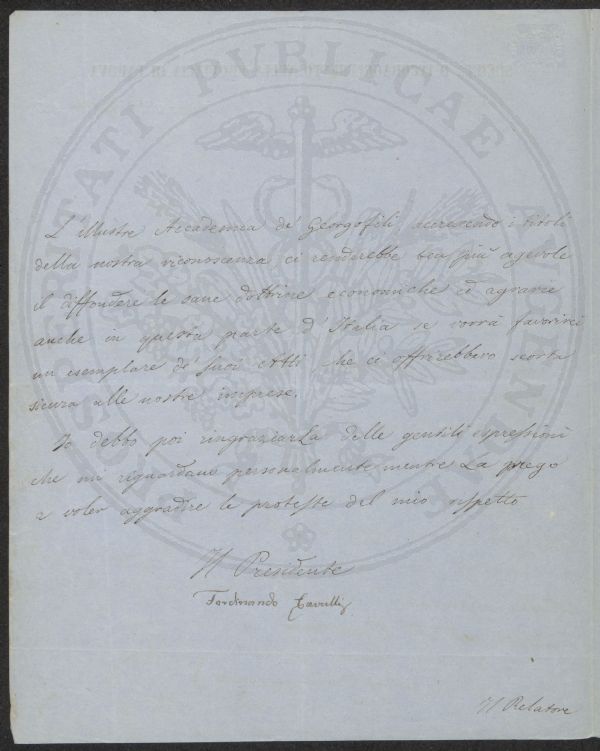 PROSPERITATI PUBLICAE AUGENDAE
L'illustre Accademia de' Georgofili, accrescendo i titoli
della nostra riconoscenza ci renderebbe ben più agevole
il diffondere le sane dottrine economiche ed agrarie
anche in questa parte d'Italia se vorrà favorirci
un esemplare de' suoi Atti, che ci offrirebbero scorta
sicura alle nostre imprese.
Io debbo poi ringraziarLa delle gentili espressioni
che mi riguardano personalmente mentre La prego
a voler aggradire le proteste del mio rispetto
Il Presidente
Ferdinando Cavalli
Il Relatore